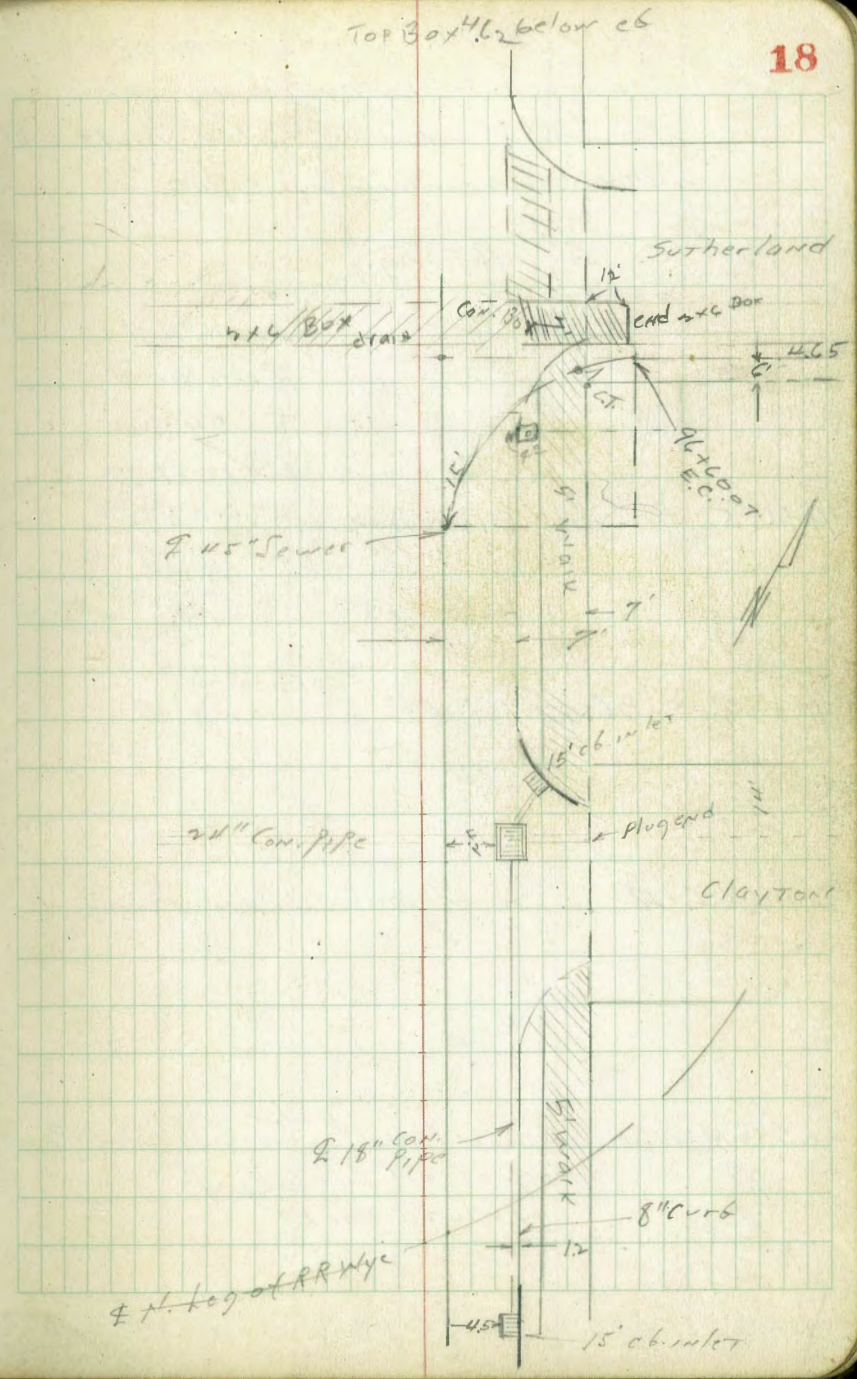 Top Box 4.62 below cb
18
Sutherland
12'
2x6 Box drain
Con. Box
end 2x6 Box
4.65
6'
C.T.
15'
96+60.07
E.C.
5' Walk
℄ 45" Sewer
7'
7'
15' cb. inlet
24" Con. Pipe
Plug end
Clayton
℄ 18" Con.
Pipe
5' Walk
8" Curb
1.2
℄ N. Leg of RR Wye
4.5
15' cb. inlet